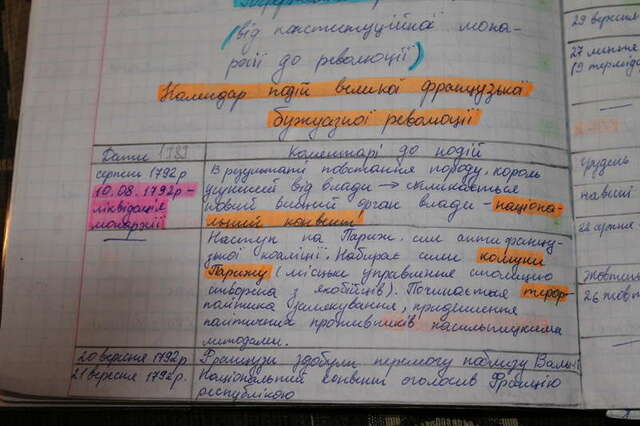 (від конституційної мона-
рхії до революції)
Календар подій великої французької
буржуазної революції
Дати 1789
Коментарі до подій
серпень 1792р
10.08.1792р -
ліквідація
монархії
В результаті повстання народу, король
усунений від влади → скликається
новий вибний орган влади - націона-
льний конвент!
Наступ на Париж. сил антифранцу-
зької коаліції. Набирає сили комуна
Парижу (міське управління столицею
створена з якобінців). Починається терор-
політика залякування, придушення
політичних противників насильницькими
методами.
20 вересня 1792р
Французи здобули перемогу поблизу Вальмі
21 вересня 1792р.
Національний конвент оголосив Францію
республікою
29 вересня
27 липня
(9 термідо
грудень
навесні
22 серпня
Жовтень
26 жовт